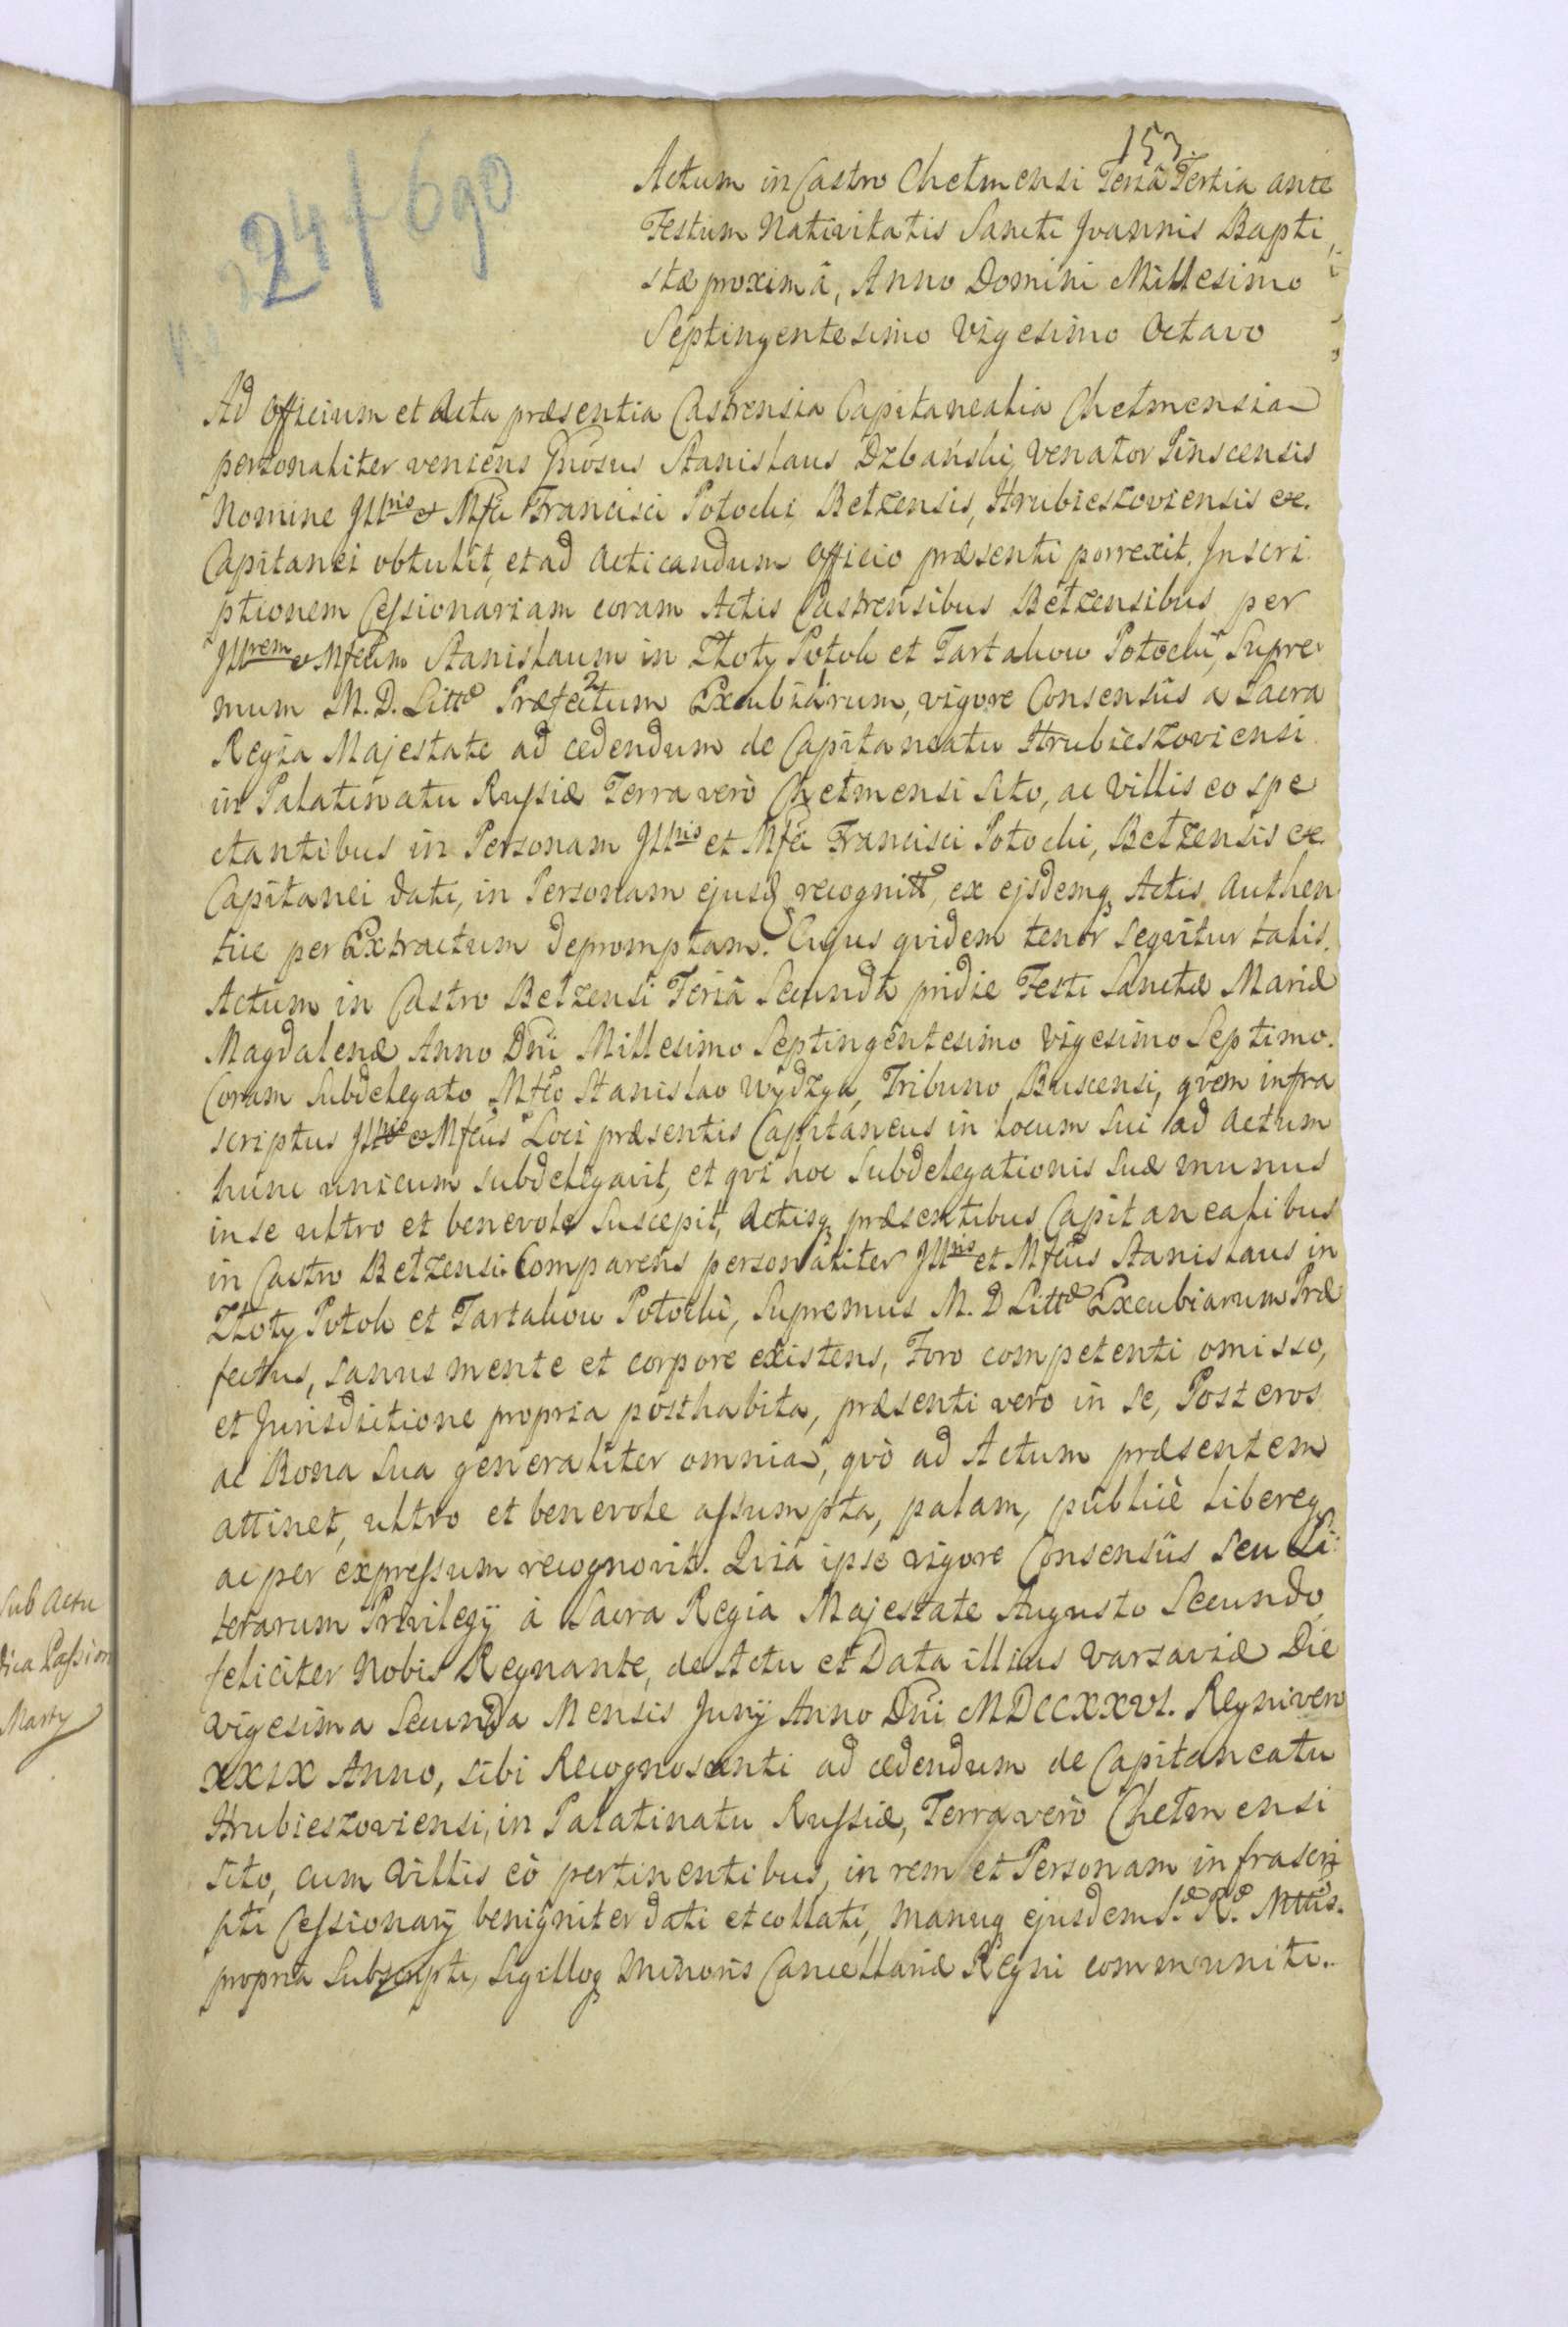 153.
24/690
Actum in Castro Chelmensi Feriâ Tertia ante
Festum Nativitatis Sancti Joannis Bapti,
stæ proximâ, Anno Domini Millesimo
Septingentesimo Vigesimo Octavo
Ad Officium et Acta præsentia Castrensia Capitanealia Chelmensia
personaliter veniens Gnosus Stanislaus Dzbański, Venator Pinscensis
Nomine Jllris & Mfci Francisci Potocki Belzensis, Hrubieszoviensis &c.
Capitanei obtulit, et ad Acticandum Officio præsenti porrexit. Inscri
ptionem Cessionariam coram Actis Castrensibus Belzensibus per
Jllrem & Mfcum Stanislaum in Złoty Potok et Tartakow Potocki, Supre
mum M. D. Littæ Præfectum Excubiarum, vigore Consensûs a Sacra
Regia Majestate ad cedendum de Capitaneatu Hrubieszoviensi
in Palatinatu Russiæ Terra verò Chelmensi Sito, ac Villis eo spe
ctantibus in Personam Jllris et Mfci Francisci Potocki, Belzensis &c
Capitanei dati, in Personam ejusd recognitt, ex ejsdemq Actis Authen
tice per Extractum depromptam. Cujus qvidem tenor seqvitur talis.
Actum in Castro Belzensi Feriâ Secundâ pridie Festi Sanctæ Mariæ
Magdalenæ Anno Dni Millesimo Septingentesimo Vigesimo Septimo.
Coram Subdelegato Mfco Stanislao Wydzga, Tribuno Buscensi, qvem infra
scriptus Jllris & Mfcus Loci præsentis Capitaneus in locum Sui ad Actum
hunc unicum subdelegavit, et qvi hoc Subdelegationis Suæ munus
in se ultro et benevole Suscepit, Actisq præsentibus Capitanealibus
in Castro Belzensi Comparens personaliter Jllris et Mfcus Stanislaus in
Złoty Potok et Tartakow Potocki, Supremus M. D Littæ Excubiarum Præ
fectus, sanus mente et corpore existens, Foro competenti omisso,
et Jurisdictione propria posthabita, præsenti vero in Se, Posteros
ac Bona Sua generaliter omnia, qvò ad Actum præsentem
attinet, ultro et benevole assumpta, palam, publicè libereq
ac per expressum recognovit. Qvia ipse vigore Consensûs Seu Li
terarum Privilegij à Sacra Regia Majestate Augusto Secundo
feliciter Nobis Regnante, de Actu et Data illius Varsaviæ Die
Vigesima Secunda Mensis Junij Anno Dni MDCCXXVI. Regni vero
XXIX Anno, sibi Recognoscenti ad cedendum de Capitaneatu
Hrubieszoviensi, in Palatinatu Russiæ, Terra verò Chelmensi
sito, cum Villis eò pertinentibus, in rem et Personam infrascri
pti Cessionarij benigniter dati et collati, Manuq ejusdem S. R. Mttis.
propria Subscripti, Sigilloq Minoris Cancellariæ Regni communiti.
Sub Actu
dica Passion
Marty